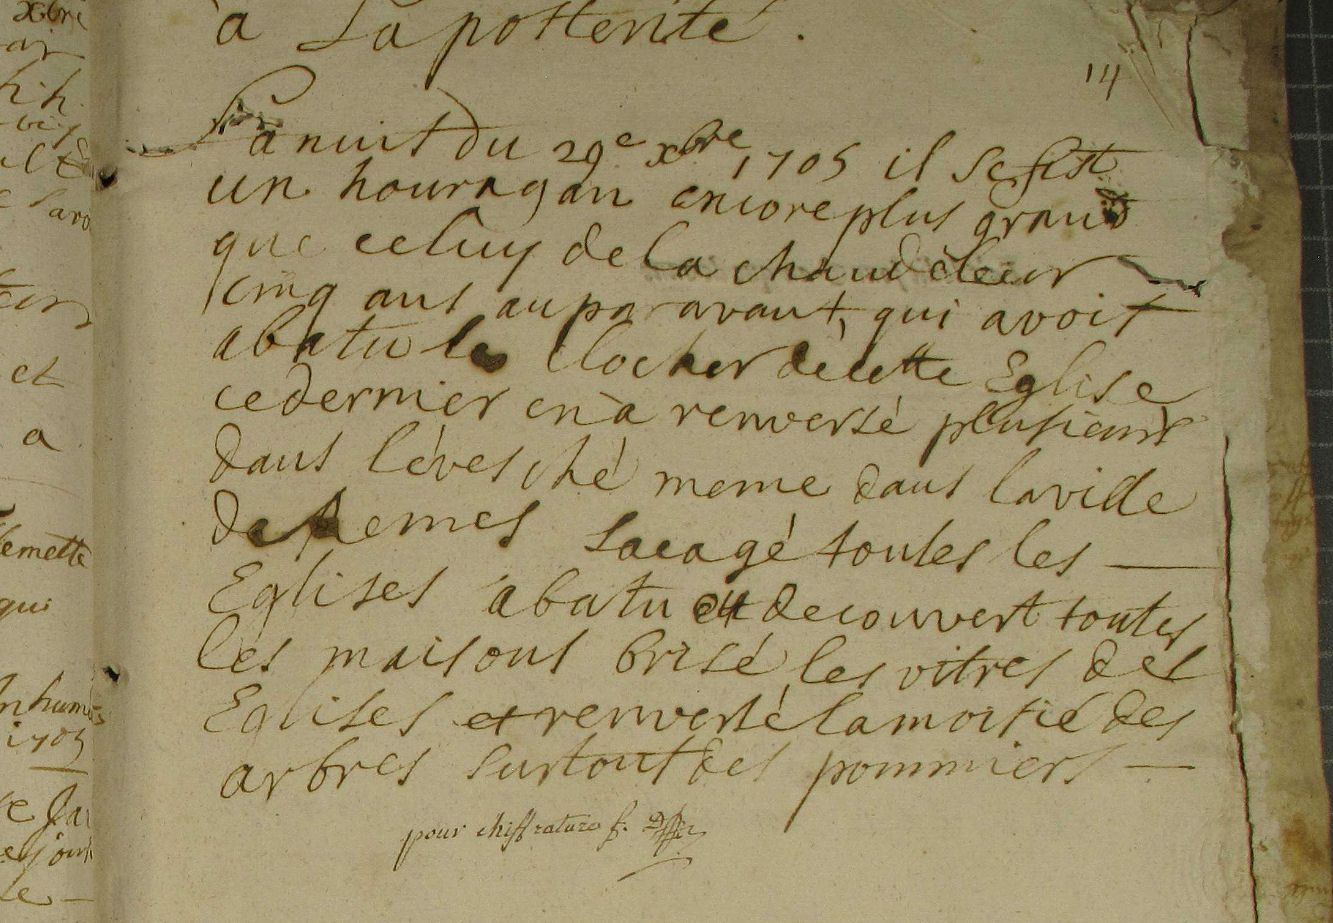 à La posterité .
14
La nuit du 29e xbre 1705 il se fist
un houragan encore plus grand
que celuy de la chandeleur
cinq ans auparavant, qui avoit
abatu le clocher de cette Eglise
ce dernier en a renversé plusieurs
dans lévesché meme dans la ville
de Renes sacagé toutes les
Eglises abatu et decouvert toutes
les maisons brisé les vitres des
Eglises et renversé la moitié des
arbres surtout des pommiers
pour chiffrature f.
xbre
et
a
qui
inhumés
1705